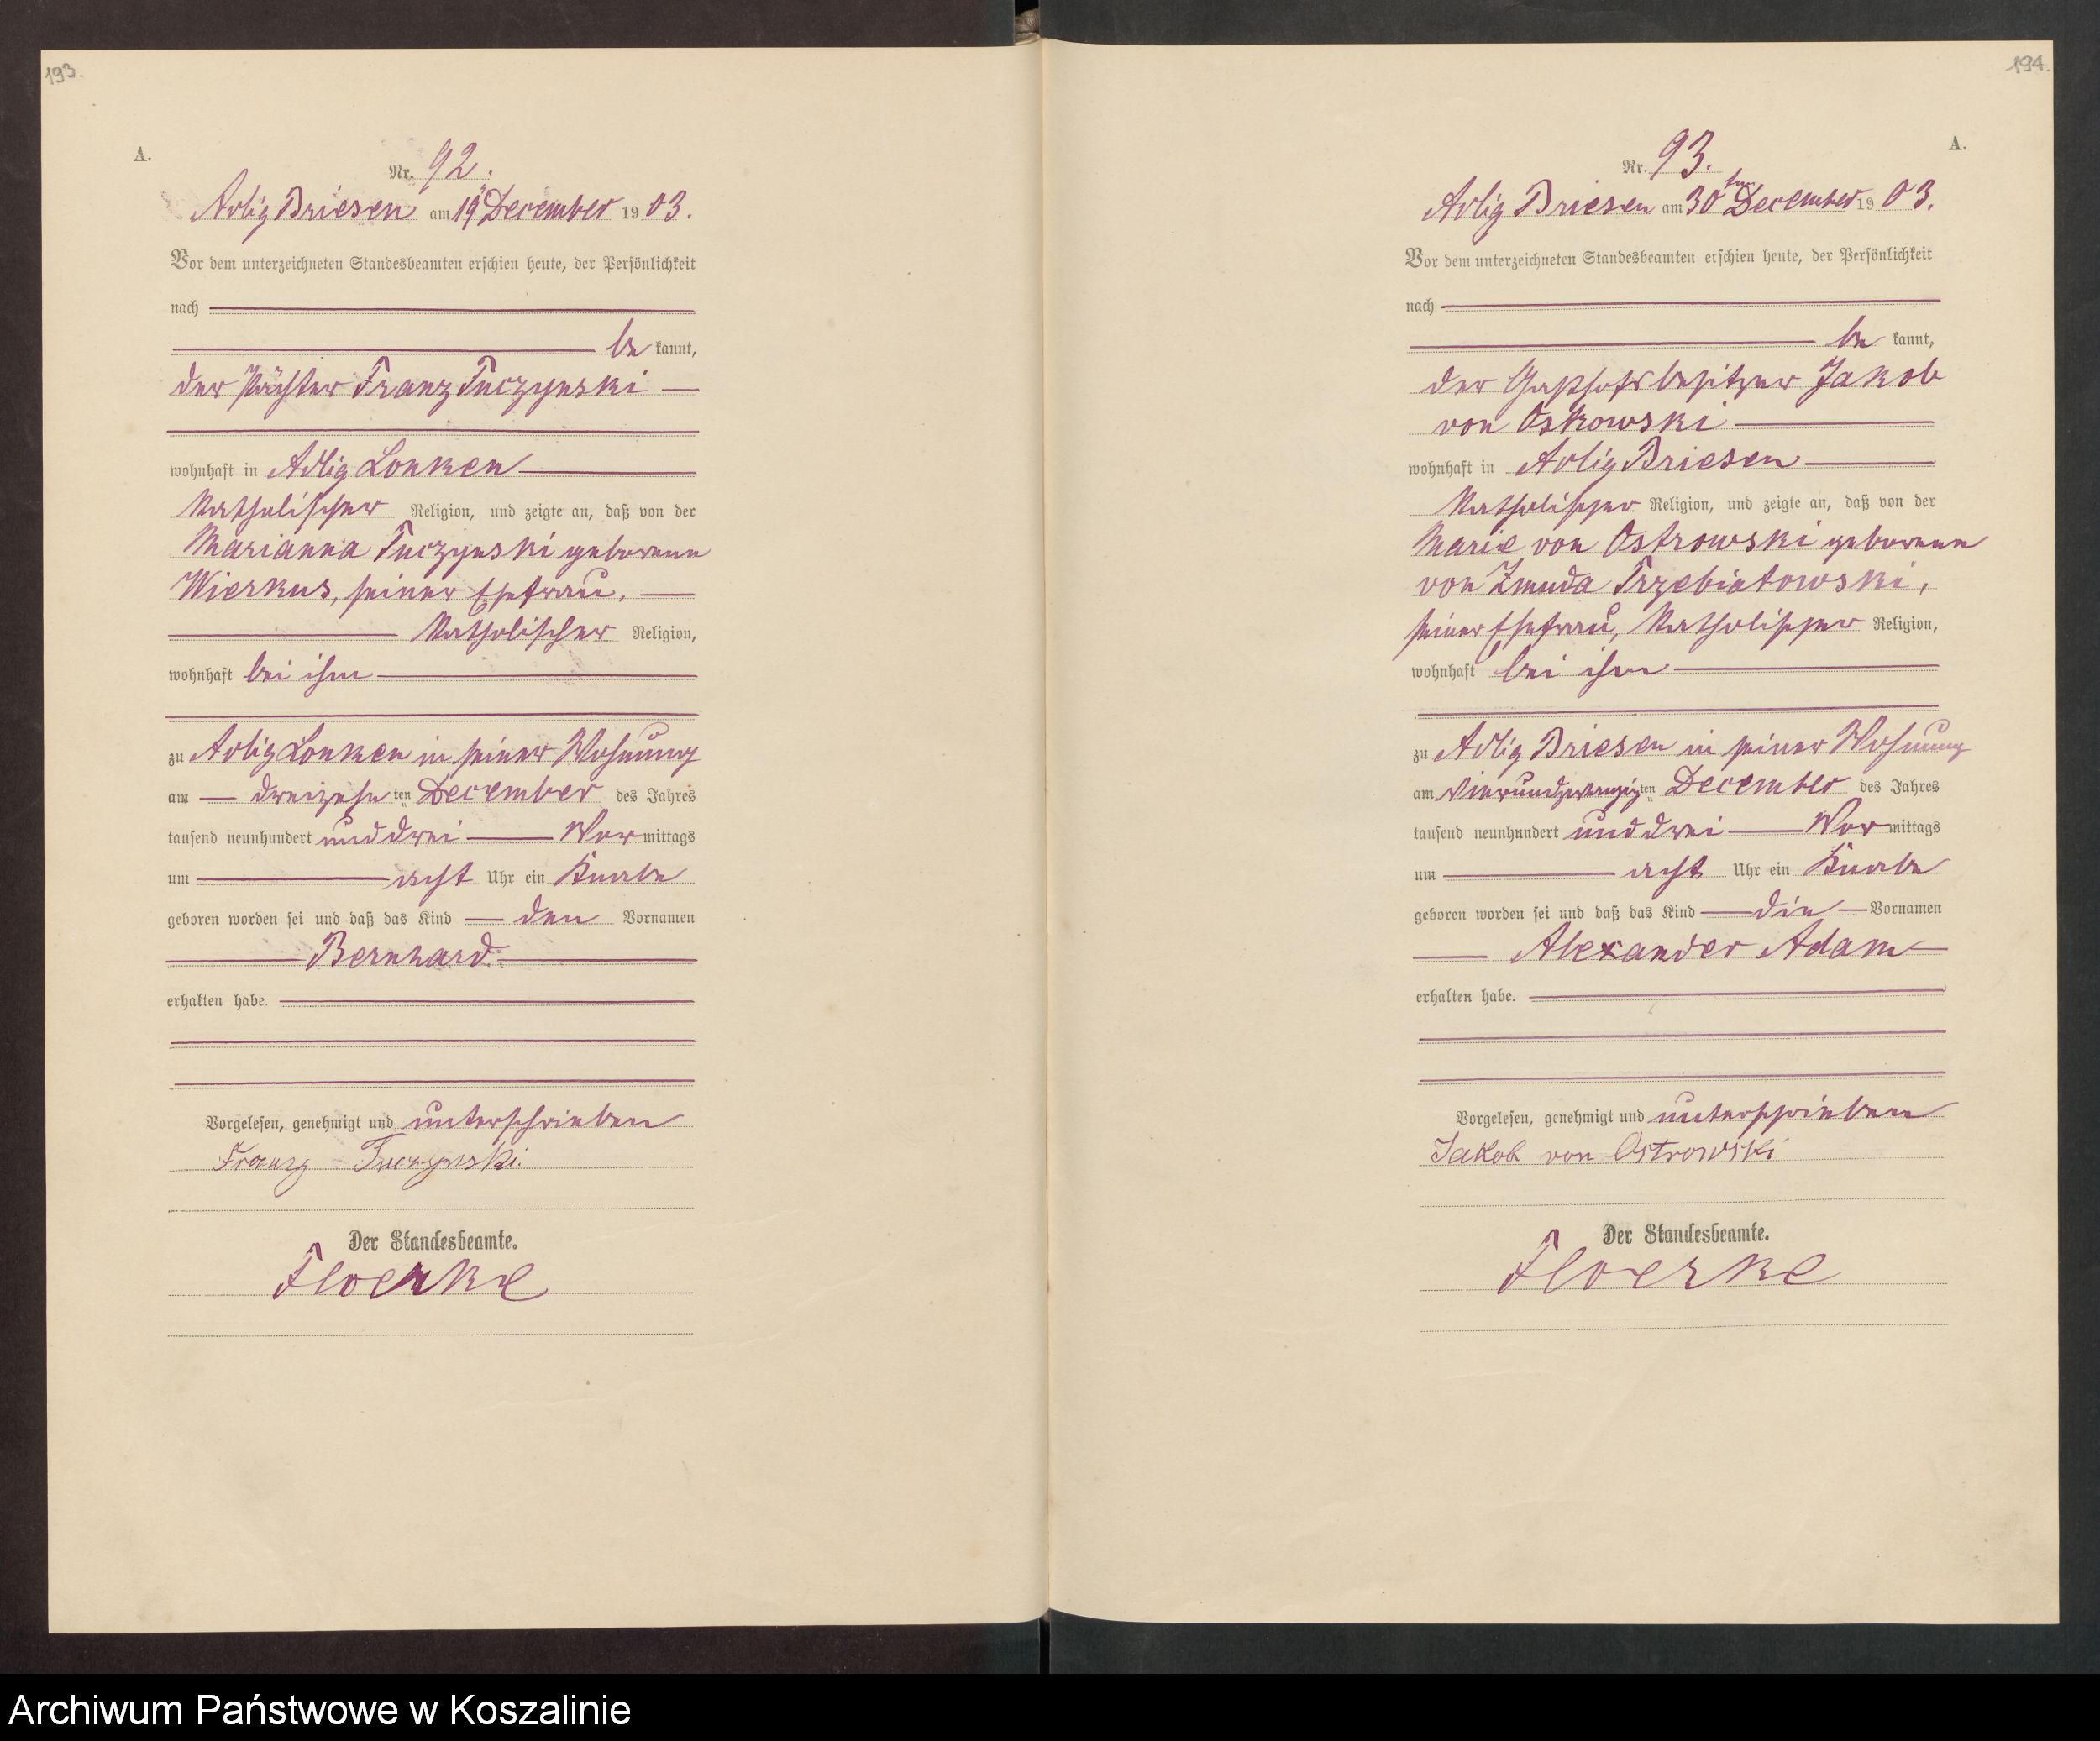 193.
A.
Nr. 92.
Adlig Briesen am 19ten December 1903.
Vor dem unterzeichneten Standesbeamten erschien heute, der Persönlichkeit
nach
be kannt,
der Pächter Franz Tuczynski
wohnhaft in Adlig Lonken
Katholischer Religion, und zeigte an, daß von der
Marianna Tuczynski geborenen
Wierkus, seiner Ehefrau,
Katholischer Religion,
wohnhaft bei ihm
zu Adlig Lonken in seiner Wohnung
am dreizehnten December des Jahres
tausend neunhundert und drei Vormittags
um acht Uhr ein Knabe
geboren worden sei und daß das Kind den Vornamen
Bernhard
erhalten habe.
Vorgelesen, genehmigt und unterschrieben
Franz Tuczynski.
Der Standesbeamte.
Floerke
194.
A.
Nr. 93.
Adlig Briesen am 30ten December 1903.
Vor dem unterzeichneten Standesbeamten erschien heute, der Persönlichkeit
nach
be kannt,
der Gasthofsbesitzer Jakob
von Ostrowski
wohnhaft in Adlig Briesen
Katholischer Religion, und zeigte an, daß von der
Marie von Ostrowski geborenen
von Zmuda Trzebiatowski,
seiner Ehefrau, Katholischer Religion,
wohnhaft bei ihm
zu Adlig Briesen in seiner Wohnung
am vierundzwanzigten December des Jahres
tausend neunhundert und drei Vormittags
um acht Uhr ein Knabe
geboren worden sei und daß das Kind die Vornamen
Alexander Adam
erhalten habe.
Vorgelesen, genehmigt und unterschrieben
Jakob von Ostrowski
Der Standesbeamte.
Floerke
Archiwum Państwowe w Koszalinie